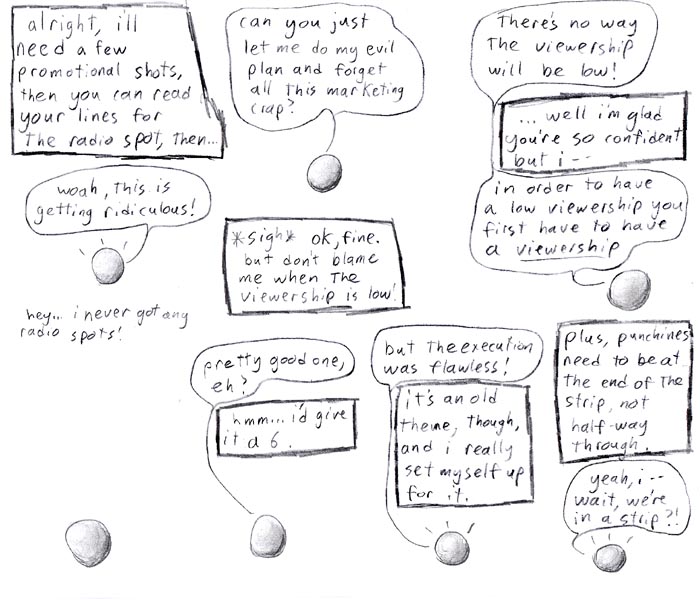 alright, i'll
need a few
promotional shots,
then you can read
your lines for
the radio spot, then...
woah, this is
getting ridiculous!
can you just
let me do my evil
plan and forget
all this marketing
crap?
*sigh* ok, fine.
but don't blame
me when the
viewership is low!
There's no way
the viewership
will be low!
... well i'm glad
you're so confident
but i--
in order to have
a low viewership you
first have to have
a viewership
hey... i never got any
radio spots!
pretty good one,
eh?
hmm... i'd give
it a 6.
but the execution
was flawless!
it's an old
theme, though,
and i really
set myself up
for it.
plus, punchlines
need to be at
the end of the
strip, not
half-way
through.
yeah, i--
wait, we're
in a strip?!